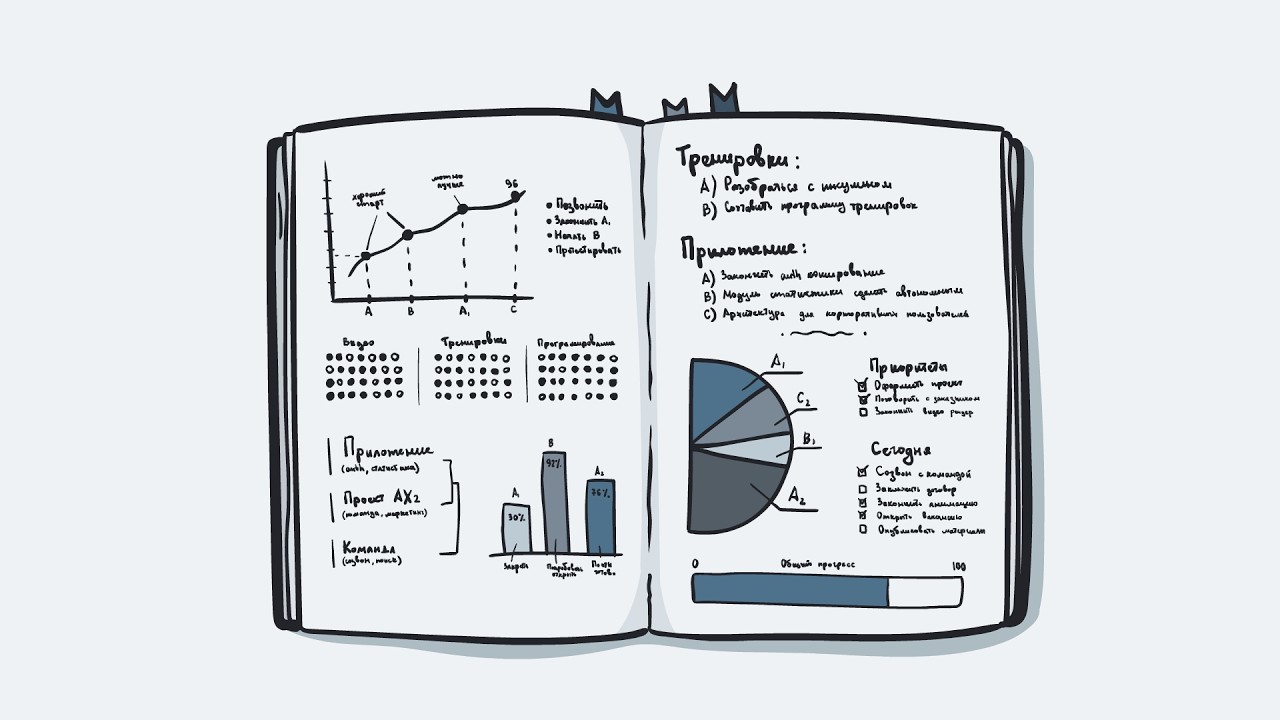 хороший
старт
можно
лучше
96
A B A₁ C
• Позвонить
• Закончить A₁
• Начать B
• Протестировать
Видео
Тренировки
Программирование
Приложение
(auth, статистика)
Проект AX2
(команда, маркетинг)
Команда
(созвон, поиск)
A₁
30%
B
92%
A₂
76%
Почти
готово
Тренировки:
A) Разобраться с инсулином
B) Составить программу тренировок
Приложение:
A) Закончить auth
B) Модуль статистики сделать автономным
C) Архитектура для корпоративных пользователей
A₁
C₂
B₁
A₂
Приоритеты
Оформить проект
Поговорить с заказчиком
Закончить видео рендер
Сегодня
Созвон с командой
Заключить договор
Закончить анимацию
Открыть вакансию
Опубликовать материалы
0 Общий прогресс 100